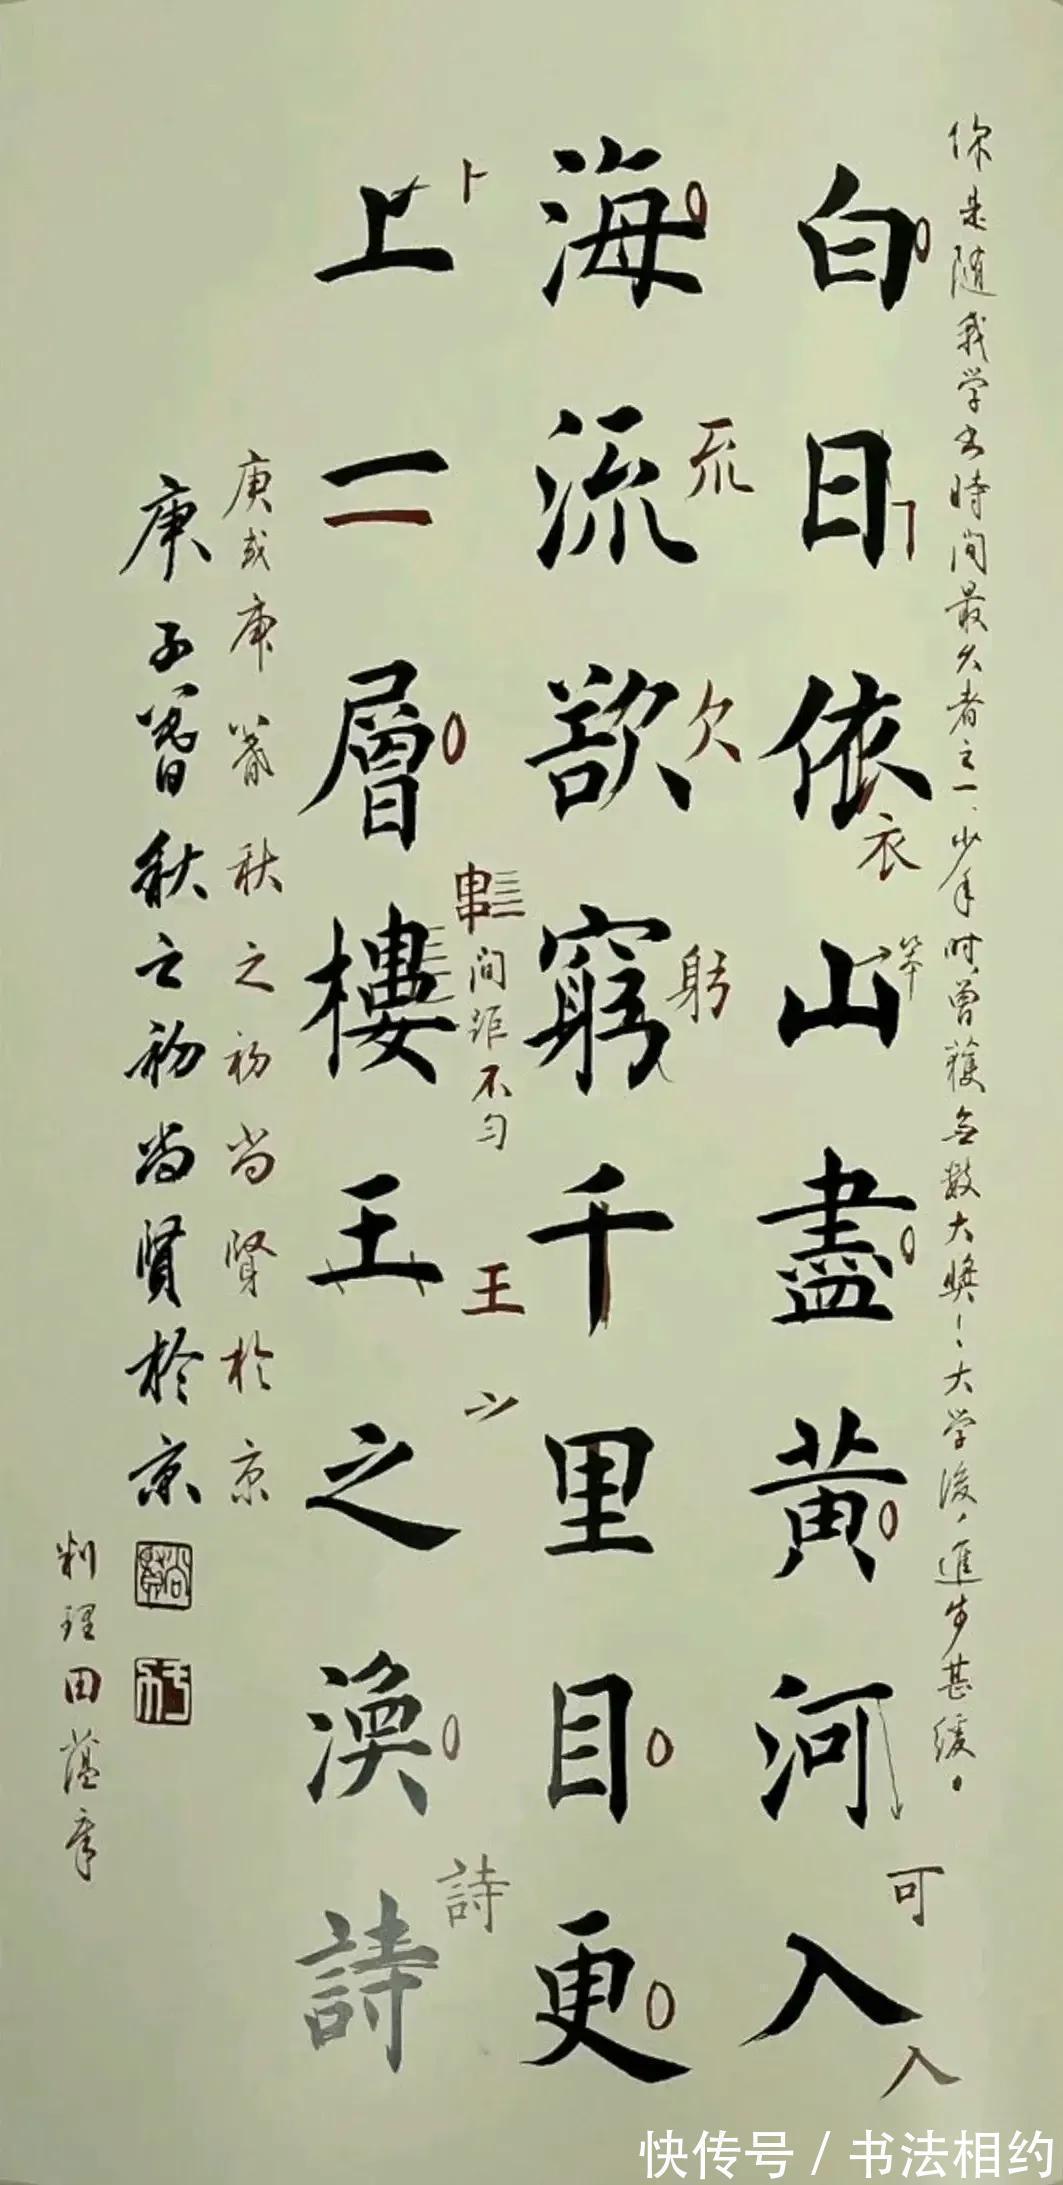 你是随我学书時间最久者之一、少年时曾獲無数大奖!大学後,進步甚缓。
白日依山盡黄河入
衣
可
入
海流欲窮千里目更
㐬
欠
躬
上一層樓王之涣詩
卜
串
间距不匀
王
詩
庚或庚
秋之初尚賢於京
庚子暮秋之初尚賢於京
田蕴章
快传号 / 书法相约